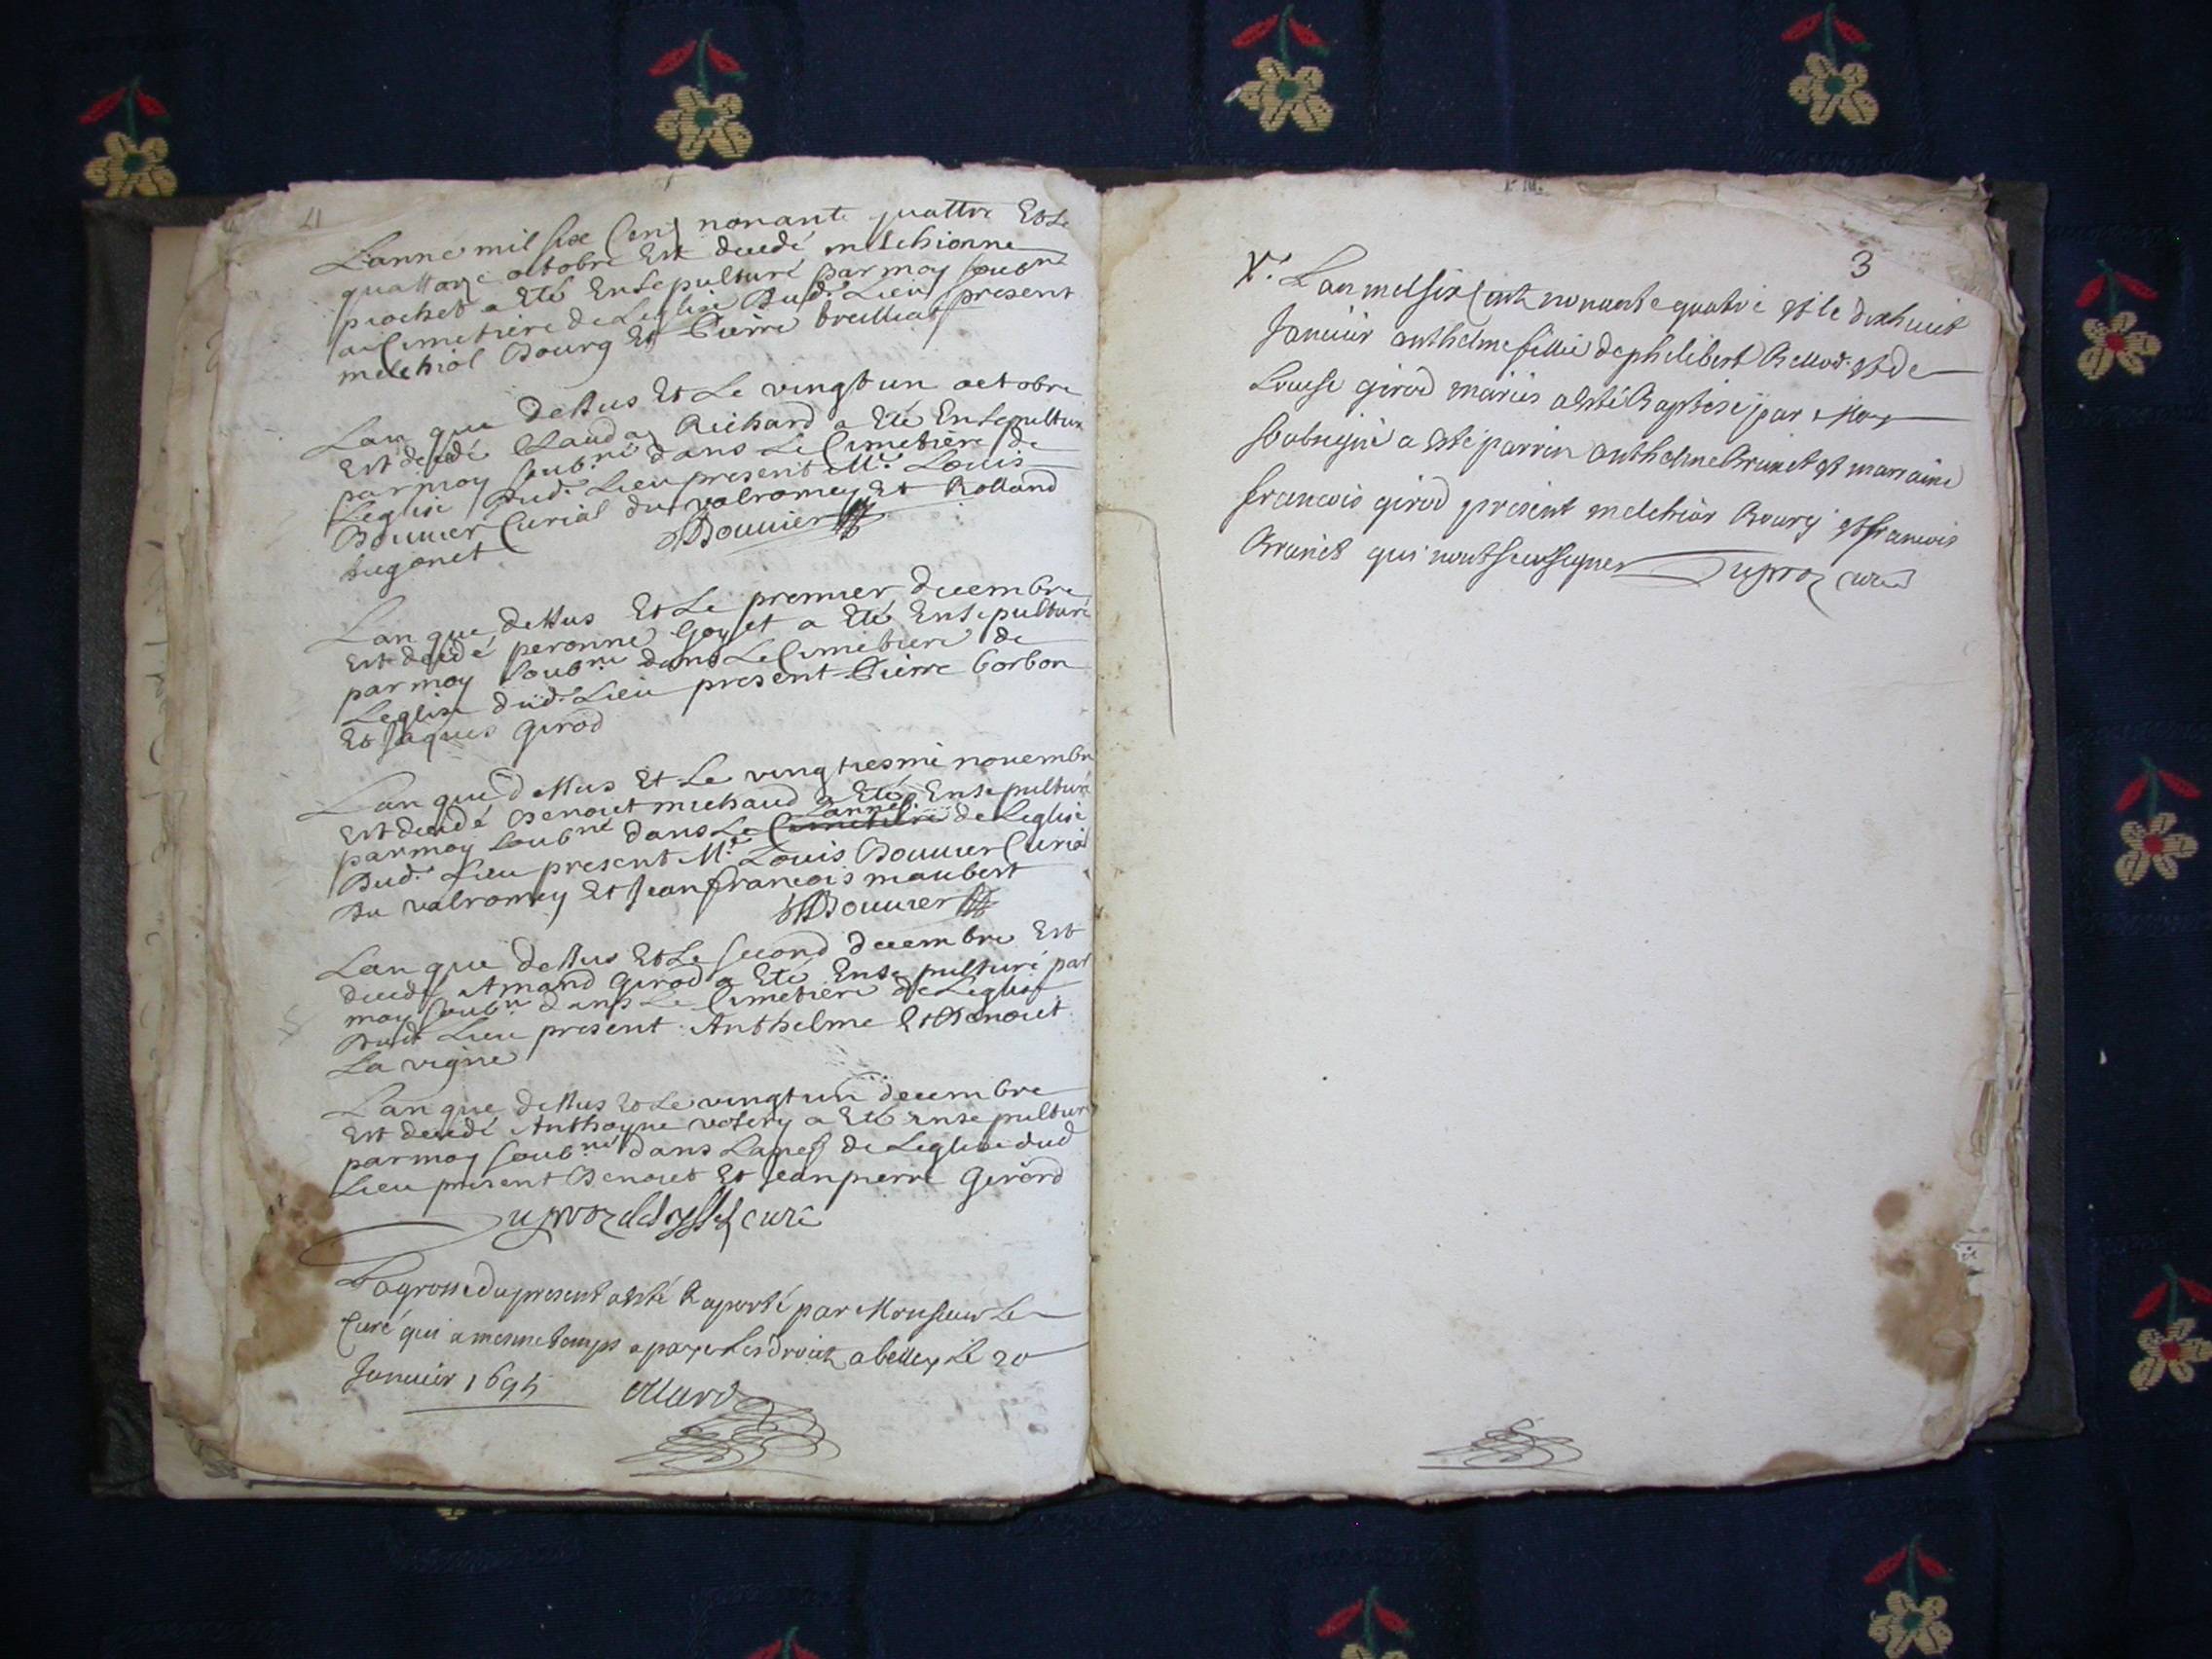 Lanne mil six Cent nonante quattre Et Le
quattorze octobre Est decedé melchionne
prochet a Eté Ensepulturé par moy soubné
au Cimetiere de Leglise Dud. Lieu present
melchiol Bourg Et Pierre breilliat
Lan que dessus Et Le vingt un octobre
Est decedé Clauda Richard a Eté Ensepulture
par moy soubné dans Le Cimetière de
Leglise Dud. Lieu present Me Louis
Bouuier Curial du valromey Et Rolland
hugonet Bouuier
Lan que dessus Et Le premier decembre
Est decedé peronne Goyset a Eté Ensepulturé
par moy soubné dans Le Cimetiere de
Leglise dud. Lieu present Pierre borbon
Et Jaques Girod
Lan que dessus Et Le vingtiesme nouembre
Est decedé Benoit michaud a Eté Ensepulturé
Lannes
par moy soubné dans Le Cimetiere de Leglise
Dud. Lieu present Me Louis Bouuier Curial
Du valromey Et Jean francois maubert
Bouuier
Lan que dessus Et Le second decembre Est
decedé Amand Girod a Eté Ensepulturé par
moy soubné dans Le Cimetiere de Leglise
Dudt Lieu present Anthelme Et Benoiet
La vigne
Lan que dessus Et Le vingt un decembre
Est decedé Anthoyne a Eté Ensepulturé
par moy soubné dans de Leglise dud
Lieu present Benoiet Et Jean pierre Girord
curé
La grosse du present a esté Raporté par Monsieur Le
Curé qui a mesme temps a payé Les droict a belley Le 20
Januier 1695
3
Lan mil six Cent nonante quatre et le dixhuit
Januier anthelme fillie de philibert Bellod et de
Louise girod mariés a esté Baptisé par Moy
soubsigné a esté parrin anthelme Brunet et marraine
francois girod present melchior Bourg et francois
Brunet qui nont sceu signer curé